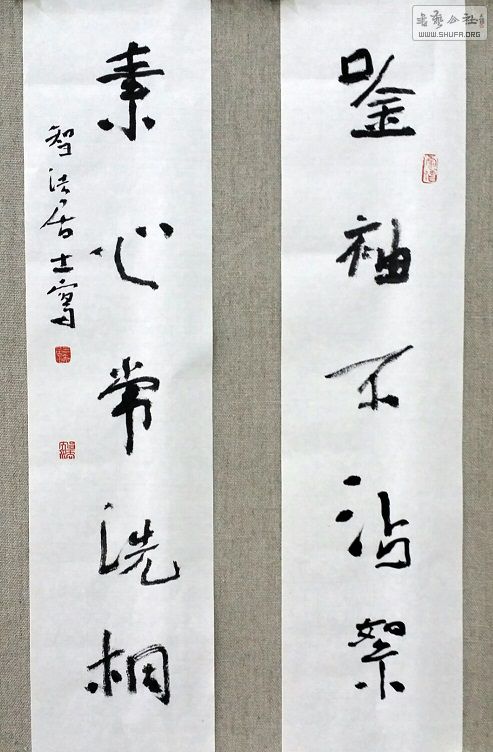 唫袖不沾絮
素心常洗桐
智法居士寫
书艺公社
WWW.SHUFA.ORG